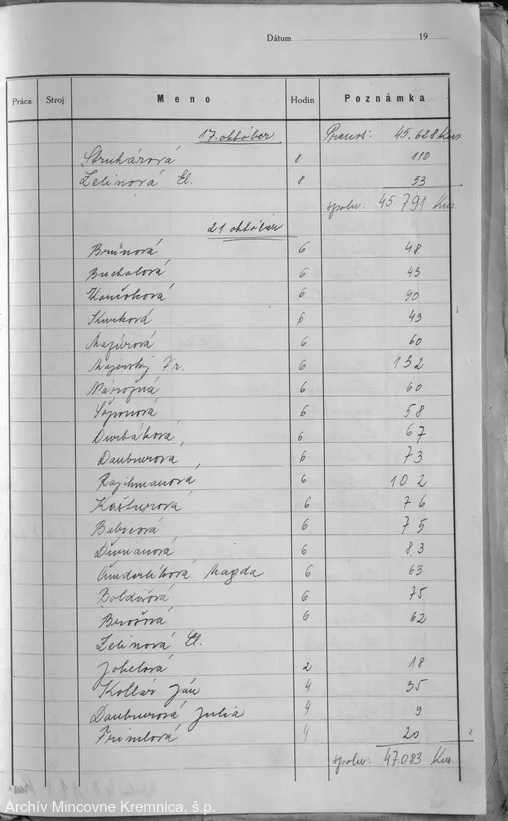 Dátum 19
Práca Stroj Meno Hodin Poznámka
17. október Prenos: 45.628 Kus
Struhárová 8 110
Zelinová El. 8 53
spolu: 45.791 Kus.
21 október
Brünová 6 48
Buchalová 6 45
6 90
6 43
Mazúrová 6 60
Fr. 6 132
6 60
6 58
Durbáková 6 67
Daubnerová 6 73
Rajchmanová 6 102
Kašturová 6 76
Babicová 6 75
6 83
Magda 6 63
Boldišová 6 75
6 62
Zelinová El.
Jobelová 2 18
Kollár Ján 4 35
Daubnerová Julia 4 9
Frimlová 4 20
spolu: 47.083 Kus.
Archív Mincovne Kremnica, š.p.